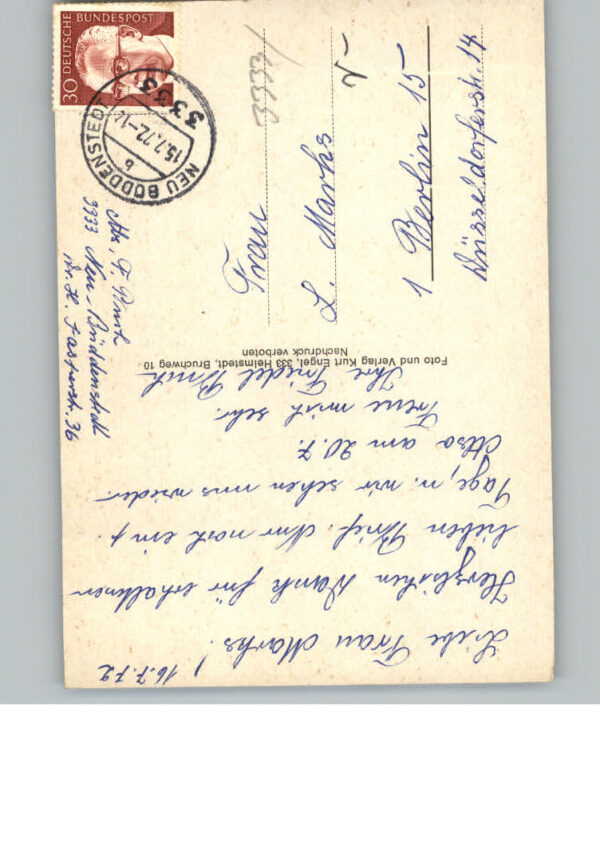 16.7.72
Liebe Frau Marks!
Herzlichen Dank für erhaltenen
lieben Brief. Nur noch ein p.
Tage, u. wir sehen uns wieder.
Also am 20.7.
Freue mich sehr.
Ihre Friedel
Foto und Verlag Kurt Engel, 333 Helmstedt, Bruchweg 10
Nachdruck verboten
Abs. F.
3333 Neu-Büddenstedt
Dr. H. 36
30 DEUTSCHE BUNDESPOST
3333
NEU BÜDDENSTEDT
15.7.72
b
3333
Frau
L. Marks
1 Berlin 15
Düsseldorferstr. 14